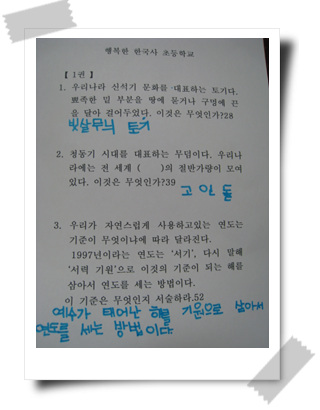 행복한 한국사 초등학교
【1권】
1. 우리나라 신석기 문화를 대표하는 토기다.
뾰족한 밑 부분을 땅에 묻거나 구멍에 끈
을 달아 걸어두었다. 이것은 무엇인가?28
빗살무늬 토기
2. 청동기 시대를 대표하는 무덤이다. 우리나
라에는 전 세계 ( )의 절반가량이 모여
있다. 이것은 무엇인가?39
고인돌
3. 우리가 자연스럽게 사용하고있는 연도는
기준이 무엇이냐에 따라 달라진다.
1997년이라는 연도는 '서기', 다시 말해
'서력 기원'으로 이것의 기준이 되는 해를
삼아서 연도를 세는 방법이다.
이 기준은 무엇인지 서술하라.52
예수가 태어난 해를 기원으로 삼아서
연도를 세는 방법이다.